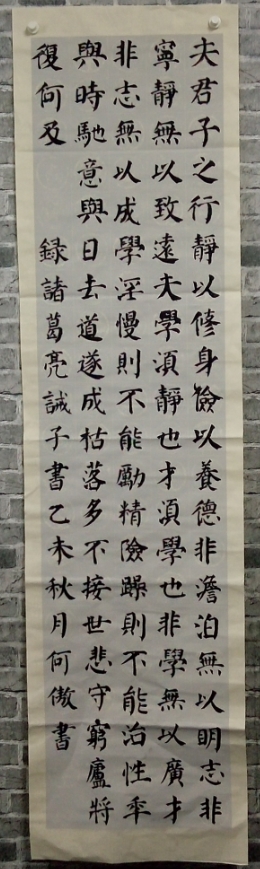 夫君子之行靜以修身儉以養德非澹泊無以明志非
寧靜無以致遠夫學須靜也才須學也非學無以廣才
非志無以成學淫慢則不能勵精險躁則不能治性年
與時馳意與日去道遂成枯落多不接世悲守窮廬將
復何及 録諸葛亮誡子書乙未秋月何傲書